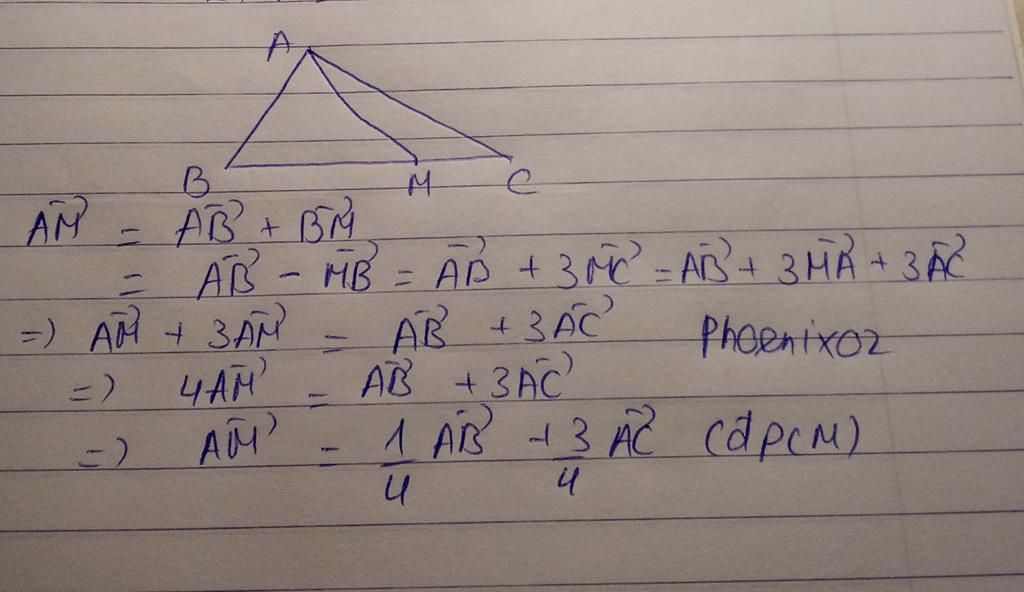 A
B M C
AM⃗ = AB⃗ + BM⃗
= AB⃗ - MB⃗ = AB⃗ + 3MC⃗ = AB⃗ + 3MA⃗ + 3AC⃗
=) AM⃗ + 3AM⃗ = AB⃗ + 3AC⃗ Phoenixoz
=) 4AM⃗ = AB⃗ + 3AC⃗
=) AM⃗ = 1/4 AB⃗ + 3/4 AC⃗ (đpcM)